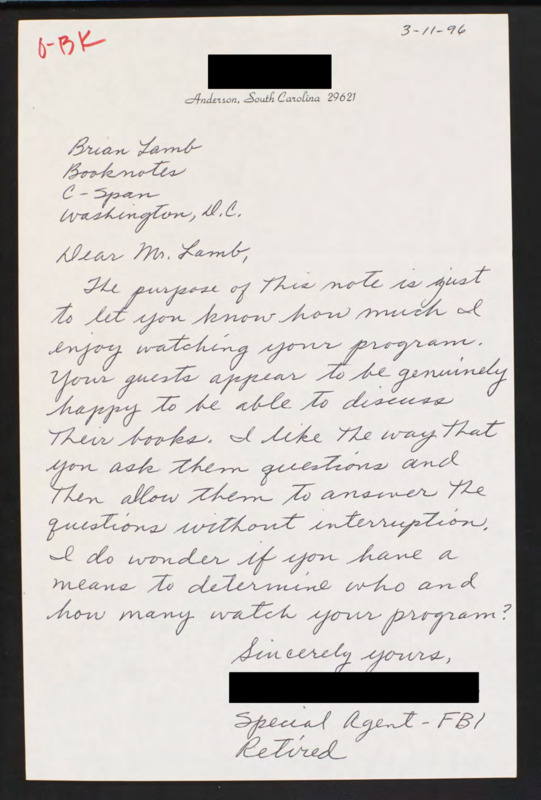 J-BK
3-11-96
Anderson, South Carolina 29621
Brian Lamb
Booknotes
C-Span
Washington, D.C.
Dear Mr. Lamb,
The purpose of this note is just
to let you know how much I
enjoy watching your program.
Your guests appear to be genuinely
happy to be able to discuss
their books. I like the way that
you ask them questions and
then allow them to answer the
questions without interruption.
I do wonder if you have a
means to determine who and
how many watch your program?
Sincerely yours,
Special Agent - FBI
Retired